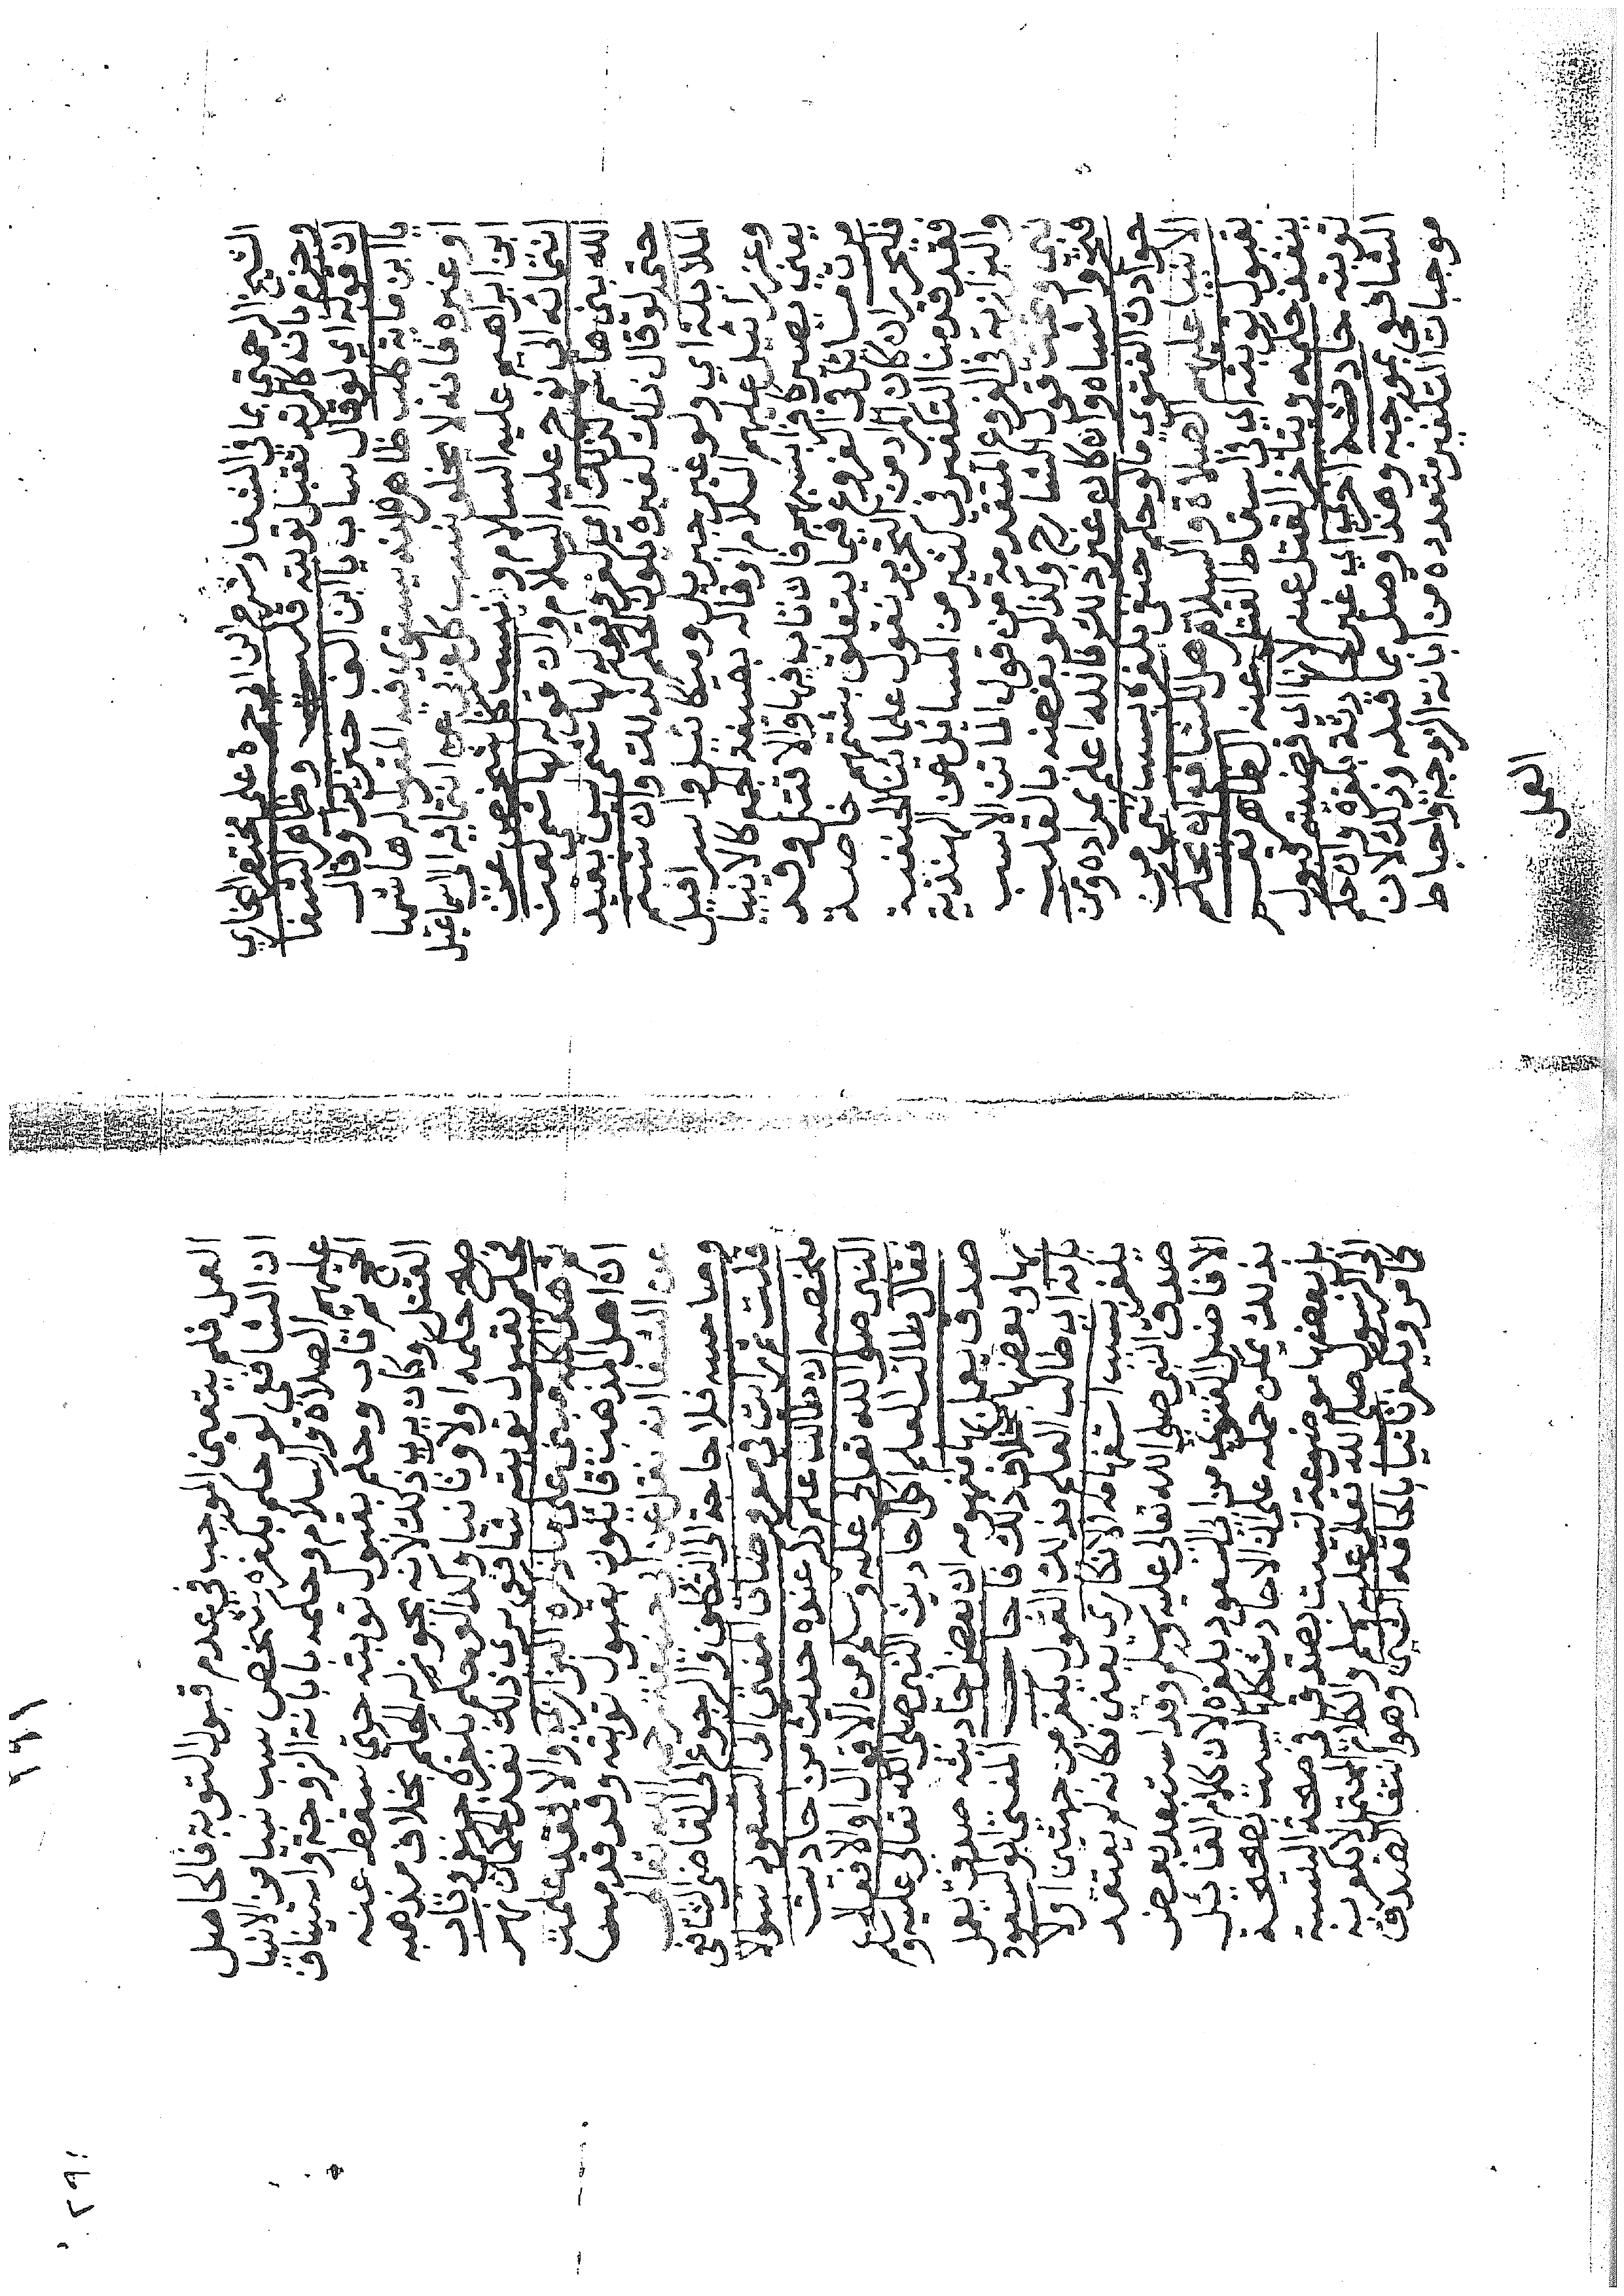 الشيخ الرحمتي بما في الشفا وشرح ابن ابي جمرة على مختصر البخاري
وجزم بانه كالردة تقبل توبته قلت وظاهر الشفا
ان قوله اي لو قال ساب يا ابن الف خنزير او قال
يا ابن ماية كلب ظاهره انه يستوي فيه المقول له هاشميا
او غيره فانه لا يخلو نسب كل عربي عن انتمائه الى اسماعيل
ابن ابراهيم عليه السلام ونسب كل شخص عن
انتمائه الى نوح عليه السلام وان قوله لهاشمي لعن
الله بني هاشم كذلك اي يكفر وقوله لهاشمي ليس بقيد
حتى لو قال ذلك لغيره يكون الحكم كذلك وان شتم
الملائكة اي ولو غير جبريل وميكائيل واسرافيل
وعزرائيل عليهم السلام او قاله بصيغة الجمع كالانبيا
يعني يصير كافرا بشتمهم فان تاب فبها والا قتل وقد
مرت مسائل في الفروع فيما يتعلق بشتمهم خاصة
فليحرر ان كان المراد من التحرير نقول علمائنا الحنفية
فقد قدمنا التكفير في كثير من المسايل عن الهندية
والبزازية في الفروع المتقدمة من قول الماتن الا سب
نبي وتحت قول الشارح وكذا لو بغضه بالقلب
فتح واشباه وان كان غير ذلك فالله اعلم بمراده ومن
حوادث الفتوى ما لو حكم حنفي بكفره بسب نبي من
الانبيا عليهم الصلاة والسلام هل للشافعي ان يحكم
بقبول توبته اي في اسقاط القتل عنه الظاهر نعم
ينفذ حكمه ويتاخر القتل عنه لانا ان قضيته قبول
توبته حادثة اخرى اي غير الحادثة بكفره وان حكم
الشافعي بموجبه وهذا وصل بما قبله وذلك لان
موجبات التكفير متعددة من ابانة الزوجة واحباط
العمل
العمل فلم يتعين الموجب في عدم قبول التوبة فالحاصل
ان الشافعي لو حكم بكفره شخص سب نبيا من الانبيا
عليهم الصلاة والسلام وحكم بابانة الزوجة واستيناف
الحج ثم تاب وحكم بقبول توبته حتى سقط عنه
القتل وكان يريد ذلك لانه يجوز له الحكم بخلاف مذهبه
صح حكمه اولا وثانيا وكذا لو حكم بكفره حنفي وتاب
فحكم بقبول توبته شافعي يرى ذلك نفذ الحكمان نهر
ثم هذا كله مبني على ما ذكره البزازي والا فقد علمت
ان اهل المذهب قائلون بقبول توبته وقد قدمنا
عن الشفا انه نقل عن ابي حنيفة رحمه الله تعالى
وصاحبيه فلا حاجة الى التكلف والرجوع الى القاضي الشافعي
قلت ثم رايت في معروضات المفتي ابي السعود سولا
ملخصه ان طالب علم ذكر عنده حديث من احاديث
النبي صلى الله تعالى عليه وسلم من الاقوال او الافعال
فقال طالب العلم اكل احاديث النبي صلى الله تعالى عليه وسلم
صدق يعمل بها مفهومه ان بعض احاديثه صدق يعمل
بها وبعضها بخلاف ذلك فاجاب المفتي ابو السعود
بانه اي طالب العلم بذلك القول يكفر من جهتين اولا
يكفر بسبب استفهامه الانكاري يعني فكانه لم يعتقد
صدق النبي صلى الله تعالى عليه وسلم وقد استبعد بعض
الافاضل الفتوى من ابي السعود بكفره لان كلام القائل
بذلك يمكن حمله على ان الاحاديث كلها ليست بصحيحة
بل بعضها موضوعة ليست بصدق في صحة النسبة
الى الرسول صلى الله تعالى عليه وسلم والكلام المحتمل لا يكون به
كافرا ويكفر ثانيا بالحاقه الشين وهو انتفا الصدق